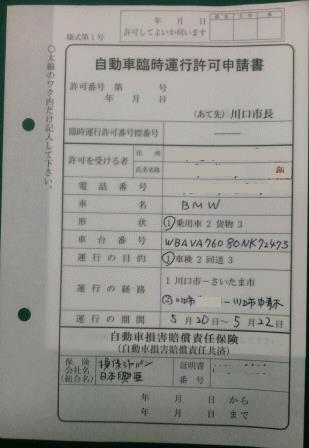 様式第1号
年 月 日
許可してよいか伺います
○太線のワク内だけ記入して下さい。
自動車臨時運行許可申請書
許可番号 第 号
年 月 日
(あて先) 川口市長
臨時運行許可番号標番号
許可を受ける者
住所
氏名名称
電話番号
車名 BMW
形状 ①乗用車 2 貨物 3
車台番号 WBAVA76080NK72475
運行の目的 ①車検 2 回送 3
運行の経路 1 川口市-さいたま市
② 川口市 -川口市
運行の期間 5月20日~5月22日
自動車損害賠償責任保険
(自動車損害賠償責任共済)
保険会社名(組合名) 損保ジャパン日本興亜
証明書番号
年 月 日 から
年 月 日 まで